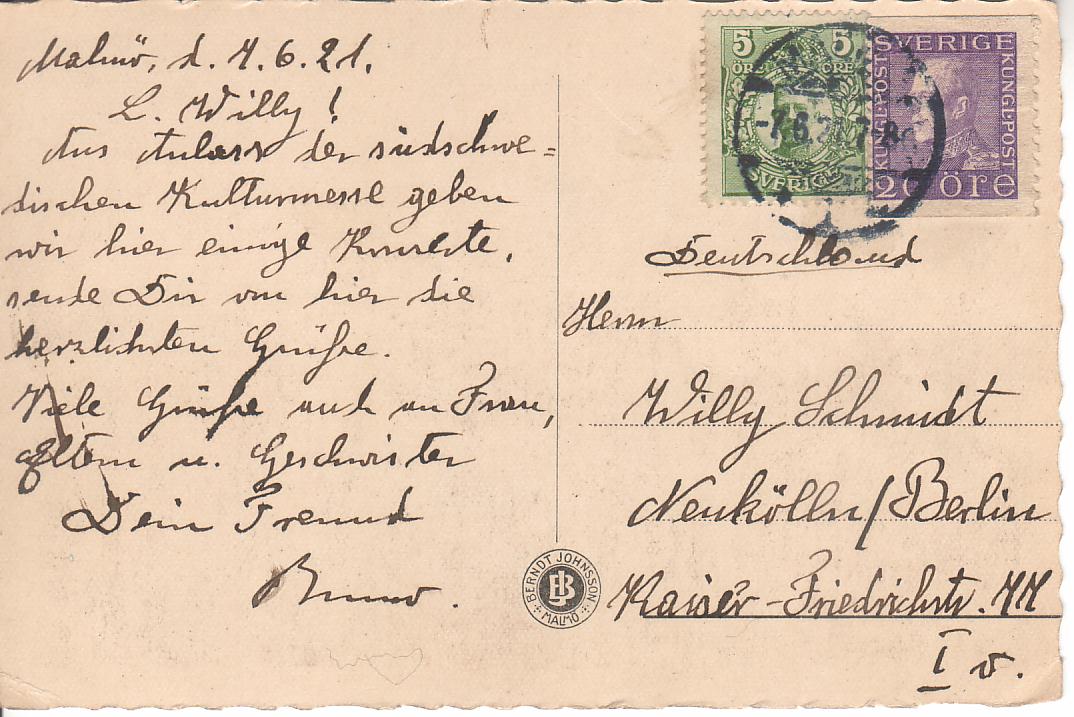 Malmö, d. 7.6.21.
L. Willy!
Aus Anlass der südschwe=
dischen Kulturmesse geben
wir hier einige Konzerte,
sende Dir von hier die
herzlichsten Grüße.
Viele Grüße auch an Frau,
Eltern u. Geschwister
Dein Freund
Bruno.
5 5
ÖRE ÖRE
SVERIGE
SVERIGE
KUNGL·POST
KUNGL·POST
20 öre
-7.6.21.7-8
Deutschland
Herrn
Willy Schmidt
Neukölln/Berlin
Kaiser-Friedrichstr.
I v.
BERNDT JOHNSSON
BJ
MALMÖ